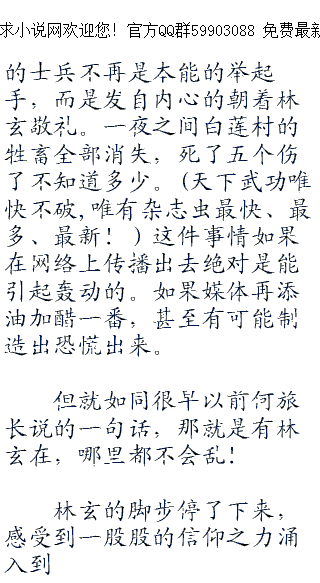 求小说网欢迎您！官方QQ群59903088 免费最新
的士兵不再是本能的举起
手，而是发自内心的朝着林
玄敬礼。一夜之间白莲村的
牲畜全部消失，死了五个伤
了不知道多少。(天下武功唯
快不破,唯有杂志虫最快、最
多、最新！)这件事情如果
在网络上传播出去绝对是能
引起轰动的。如果媒体再添
油加醋一番，甚至有可能制
造出恐慌出来。
但就如同很早以前何旅
长说的一句话，那就是有林
玄在，哪里都不会乱！
林玄的脚步停了下来，
感受到一股股的信仰之力涌
入到